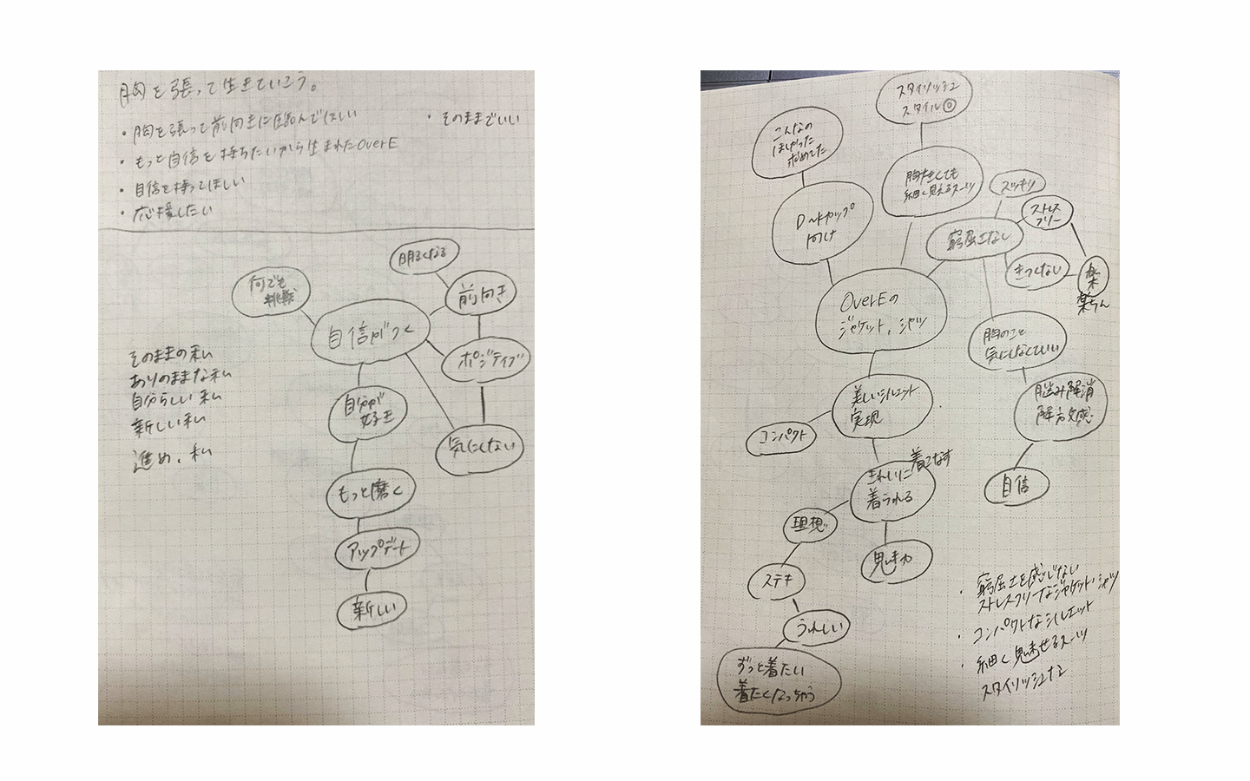 胸を張って生きていこう。
・胸を張って前向きに臨んでほしい
・そのままでいい
・もっと自信を持ちたいから生まれたoverE
・自信を持ってほしい
・応援したい
明るくなる
何でも
挑戦
前向き
自信がつく
ポジティブ
そのままの私
ありのままな私
自分らしい私
新しい私
進め、私
自分が
好き
気にしない
もっと磨く
アップデート
新しい
スタイリッシュ
スタイル◎
こんなの
ほしかった
求めてた
胸大きくても
細く見えるスーツ
スッキリ
ストレス
フリー
D〜Hカップ
向け
窮屈さなし
きつくない
楽
楽ちん
OverEの
ジャケット、シャツ
胸のこと
気にしなくていい
美しいシルエット
実現
コンパクト
悩み解消
解放感
きれいに
着こなす
着られる
自信
理想
魅せる
ステキ
うれしい
ずっと着たい
着たくなっちゃう
・窮屈さを感じない
ストレスフリーなジャケット・シャツ
・コンパクトなシルエット
・細く魅せるスーツ
スタイリッシュな